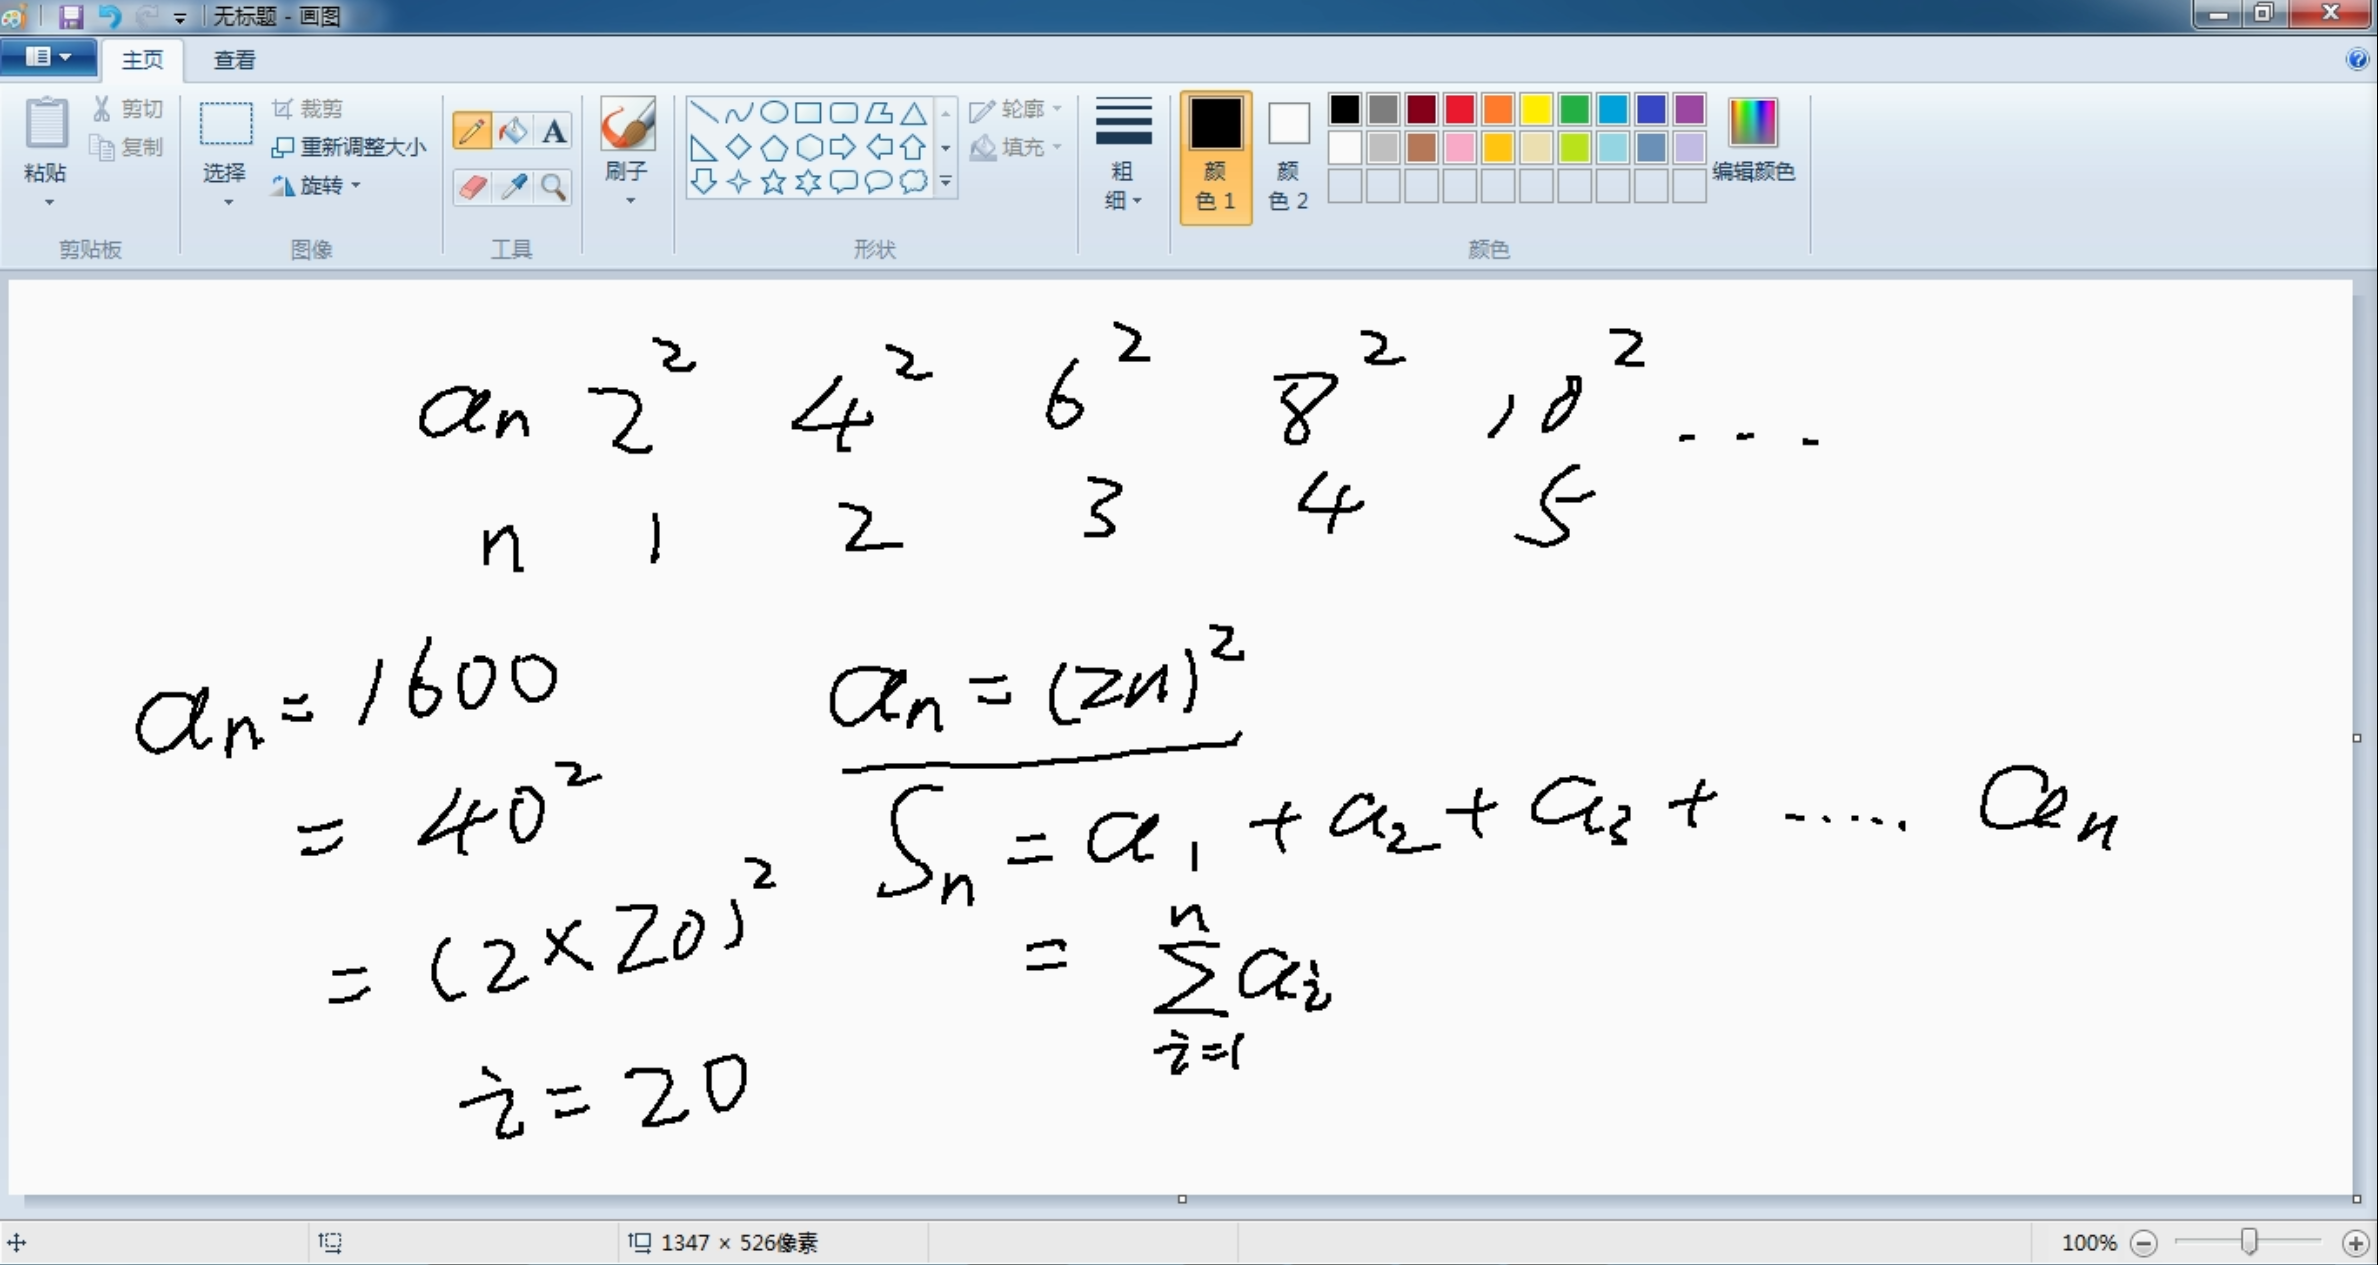 无标题 - 画图
主页 查看
粘贴 剪切 复制 选择 裁剪 重新调整大小 旋转 A 刷子 轮廓 填充 粗细 颜色 1 颜色 2 编辑颜色
剪贴板 图像 工具 形状 颜色
an 2² 4² 6² 8² 10² ...
n 1 2 3 4 5
an = 1600
= 40²
= (2×20)²
i = 20
an = (2n)²
Sn = a1 + a2 + a3 + ..... an
= ∑ᵢ₌₁ⁿ ai
1347 × 526像素 100%